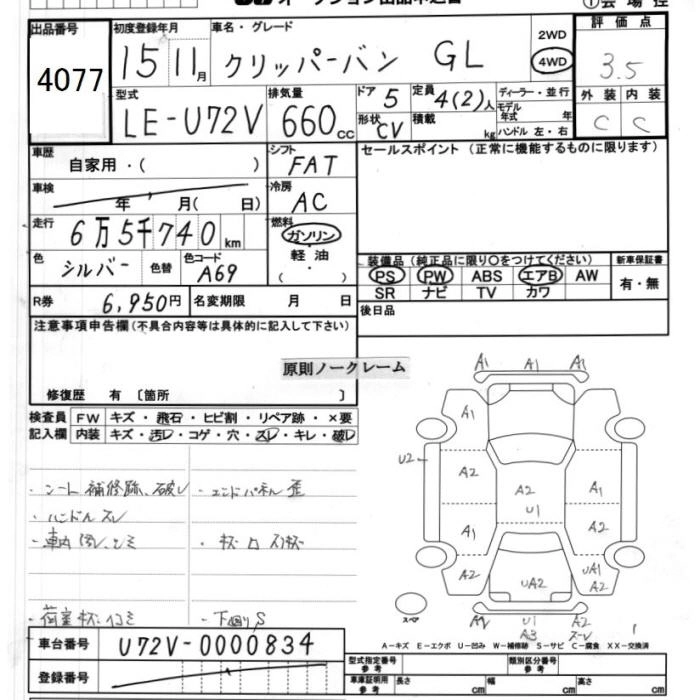 オークション出品申込書
①会場控
出品番号
4077
初度登録年月
15 11月
車名・グレード
クリッパーバン GL
2WD
4WD
評価点
3.5
型式
LE-U72V
排気量
660cc
ドア
5
形状
CV
定員
4(2)人
積載
kg
ディーラー・並行
モデル年式 年
ハンドル 左・右
外装 内装
C C
車歴
自家用・( )
シフト
FAT
セールスポイント (正常に機能するものに限ります)
車検
年 月( 日)
冷房
AC
走行
6万5千740km
燃料
ガソリン
軽油
( ・ )
色
シルバー
色替
色コード
A69
装備品 (純正品に限り○をつけてください)
PS PW ABS エアB AW
SR ナビ TV カワ
新車保証書
有・無
R券
6,950円
名変期限 月 日
後日品
注意事項申告欄(不具合内容等は具体的に記入して下さい)
原則ノークレーム
修復歴 有 〔箇所 〕
検査員記入欄
FW キズ・飛石・ヒビ割・リペア跡・×要
内装 キズ・汚レ・コゲ・穴・スレ・キレ・破レ
・シート補修跡、破レ
・エンドパネル歪
・ハンドルスレ
・車内汚レ、シミ
・下回りS
A1 A1 A1
A1
U2
A2 A2 A1
U1
A1 A2
A2 UA2 UA1 A2
スペア
U1 A2
A3
車台番号
U72V-0000834
登録番号
A-キズ E-エクボ U-凹み W-補修跡 S-サビ C-腐食 XX-交換済
型式指定番号
参考
類別区分番号
参考
車庫証明用
参考
長さ cm 幅 cm 高さ cm